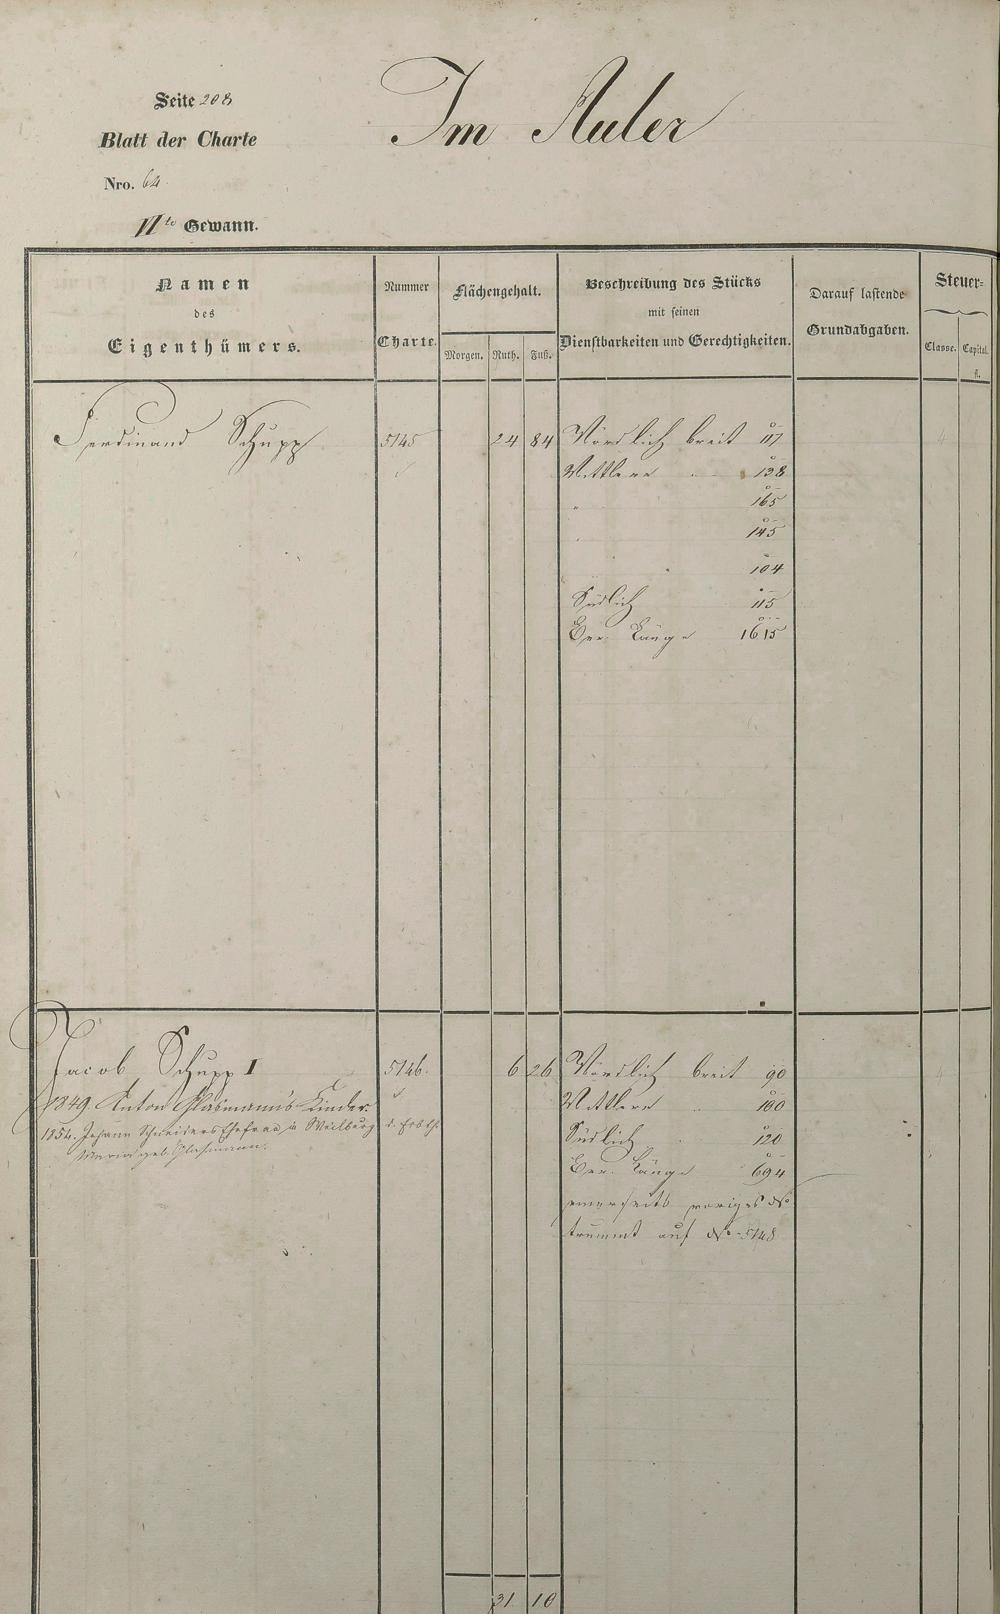 Im Auler
Seite 208
Blatt der Charte
Nro. 64
VI te Gewann.
Namen
des
Eigenthümers.
Nummer
Charte.
Flächengehalt.
Morgen. Ruth. Fuß.
Beschreibung des Stücks
mit seinen
Dienstbarkeiten und Gerechtigkeiten.
Darauf lastende
Grundabgaben.
Steuer-
Classe. Capital.
fl.
Ferdinand Schupp 5145 24 84 Nördlich breit 117
Mittlere 138
" 165
" 145
104
Südlich 115
Ber. Länge 1615
Jacob Schupp I 5146. 6 26 Nördlich breit 90
1849. Anton Glasmann's Kinder. Mittlere 100
1854. Johann Schneiders Ehefrau in Weilburg d. Erbth.
Maria geb. Glasmann.
Südlich 120
Ber. Länge 694
einerseits voriges No
trummt auf No 5148
31 10